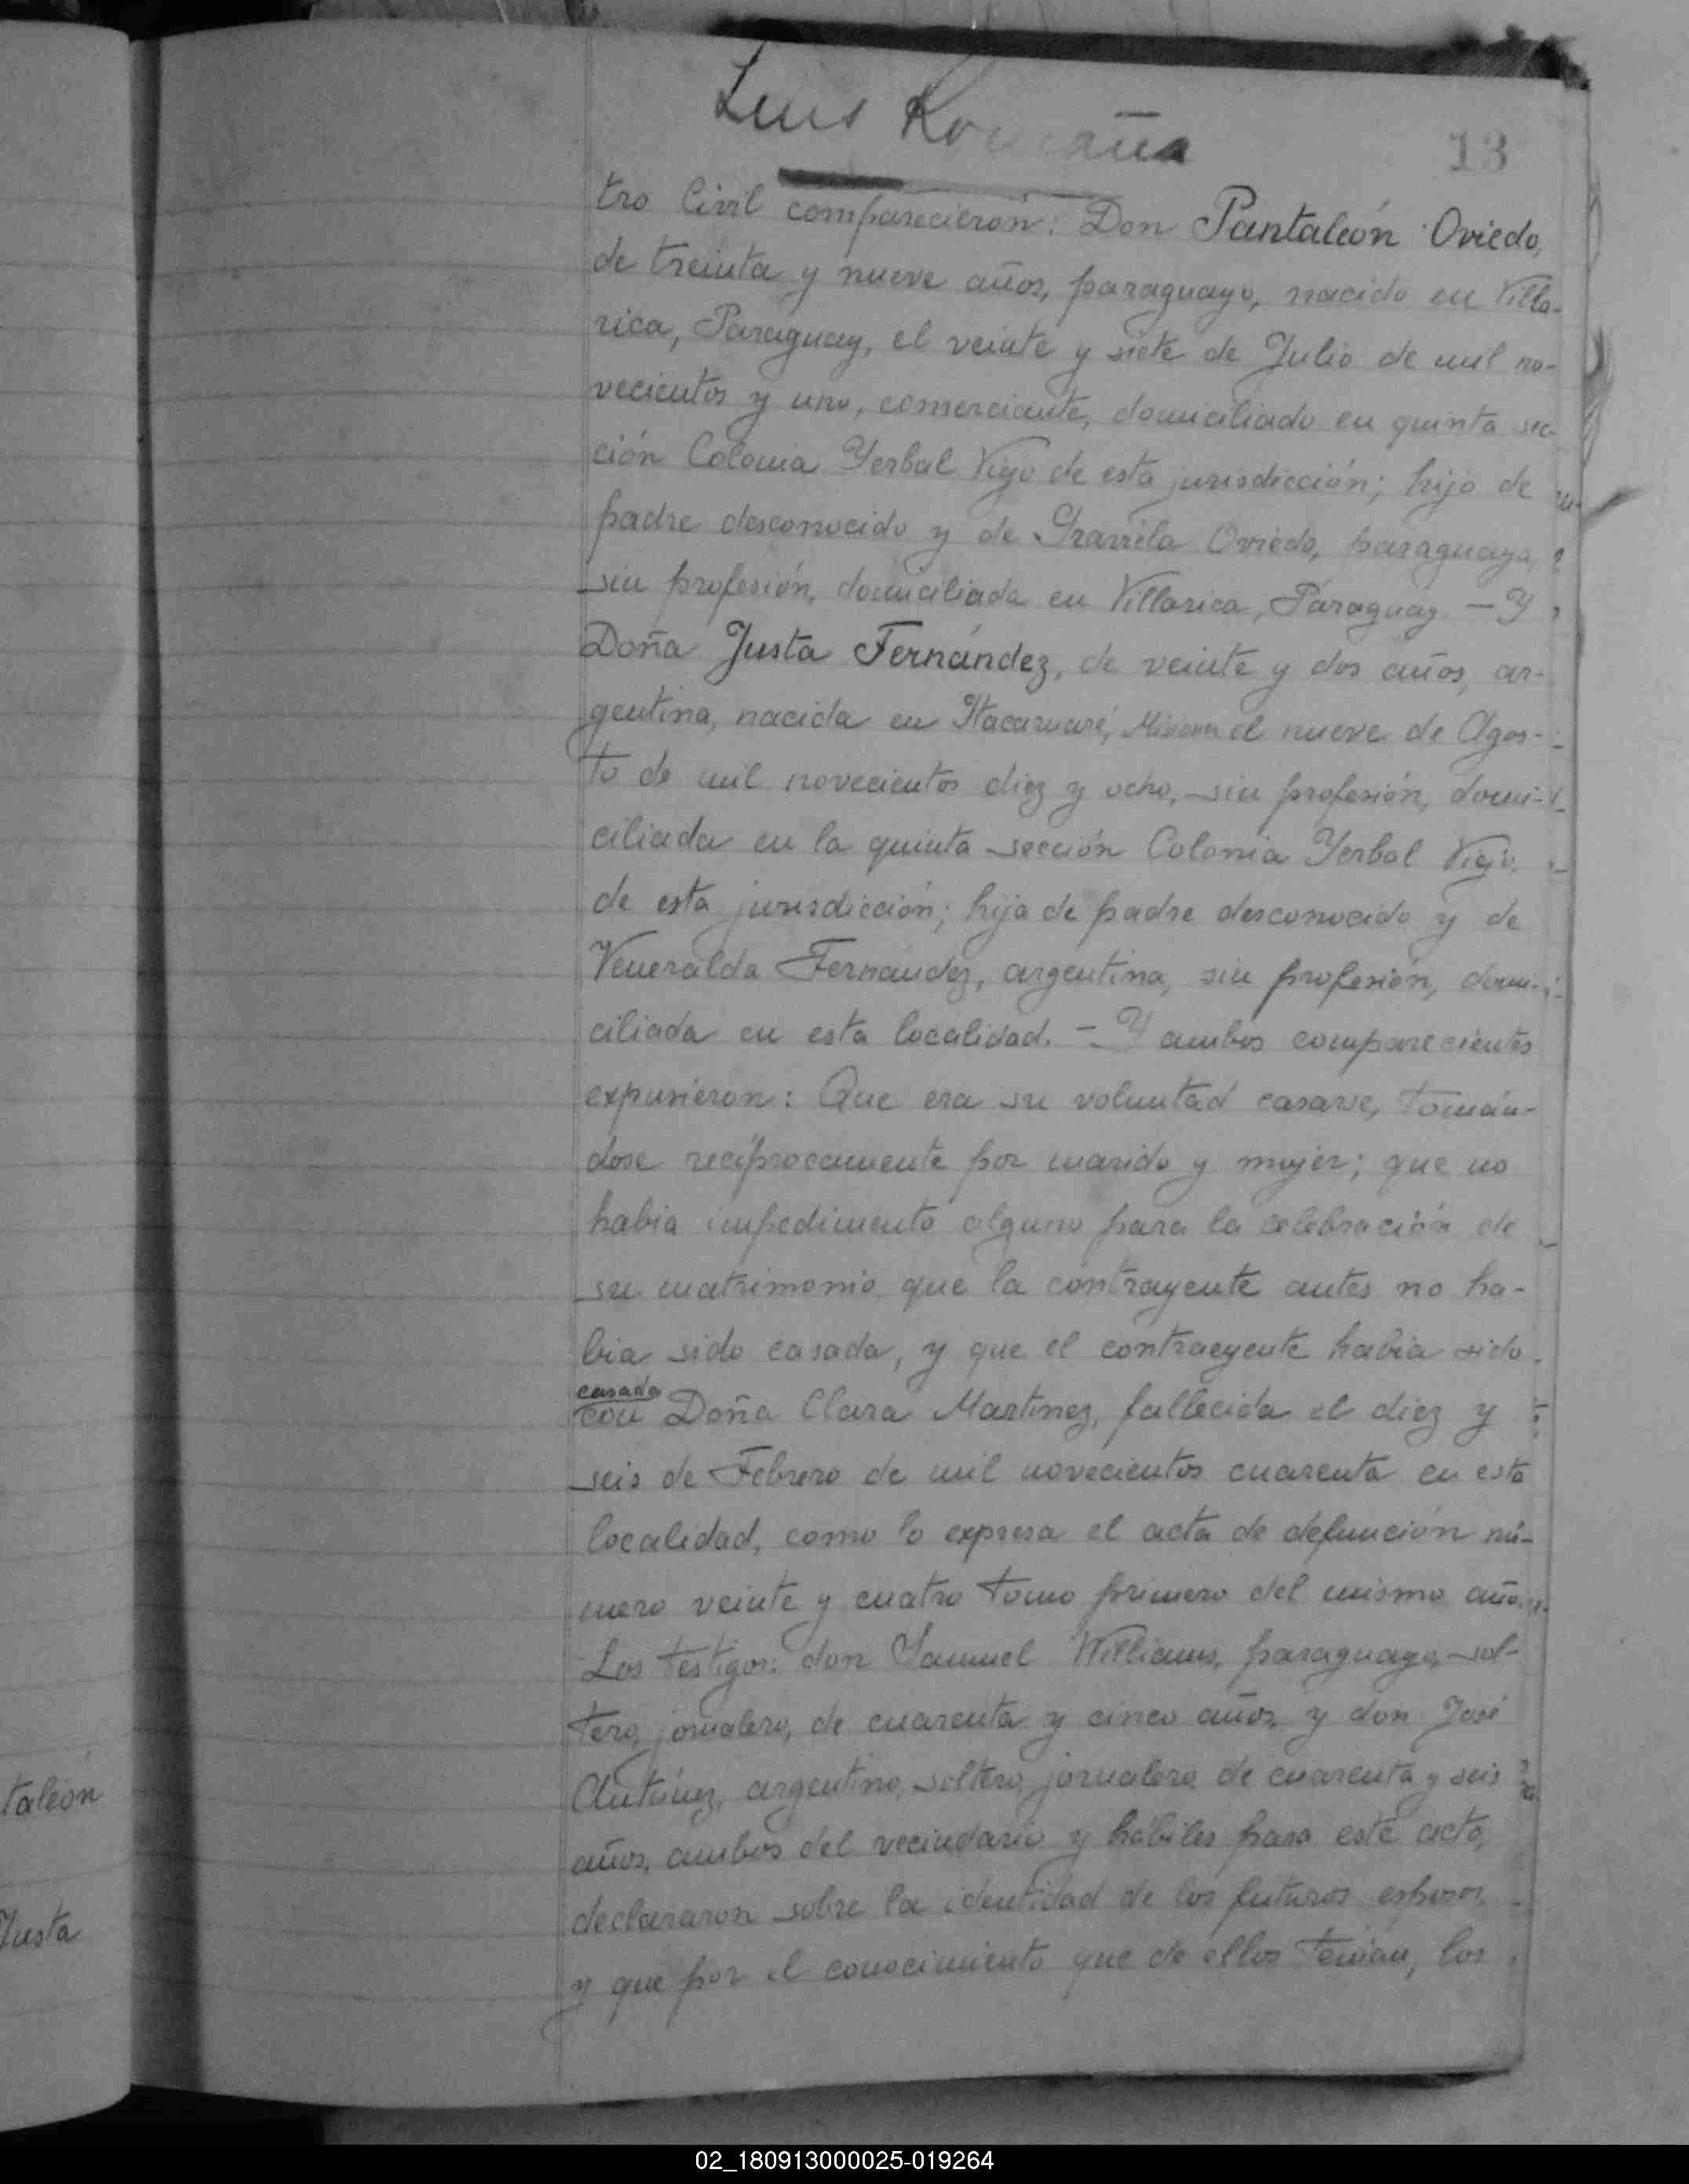 Luis
13
tro Civil comparecieron: Don Pantaleón Oviedo,
de treinta y nueve años, paraguayo, nacido en Villa-
rica, Paraguay, el veinte y siete de Julio de mil no-
vecientos y uno, comerciante, domiciliado en quinta sec-
ción Colonia Yerbal Viejo de esta jurisdicción; hijo de
padre desconocido y de Oviedo, paraguaya,
sin profesión, domiciliada en Villarica, Paraguay. — Y
Doña Justa Fernández, de veinte y dos años, ar-
gentina, nacida en Itacaruaré, Misiones el nueve de Agos-
to de mil novecientos diez y ocho, sin profesión, domi-
ciliada en la quinta sección Colonia Yerbal Viejo
de esta jurisdicción; hija de padre desconocido y de
Veneralda Fernández, argentina, sin profesión, domi-
ciliada en esta localidad. — Y ambos comparecientes
expusieron: Que era su voluntad casarse, tomán-
dose recíprocamente por marido y mujer; que no
habia impedimento alguno para la celebración de
su matrimonio, que la contrayente antes no ha-
bia sido casada, y que el contraeyente habia sido
casado
con Doña Clara Martinez, fallecida el diez y
seis de Febrero de mil novecientos cuarenta en esta
localidad, como lo expresa el acta de defunción nú-
mero veinte y cuatro tomo primero del mismo año.
Los testigos: don Samuel Williams, paraguayo, sol-
tero, jornalero, de cuarenta y cinco años, y don José
Antúnez, argentino, soltero, jornalero de cuarenta y seis
años, ambos del vecindario y hábiles para este acto,
declararon sobre la identidad de los futuros esposos,
y que por el conocimiento que de ellos tenian, los
taleón
Justa
02_180913000025-019264